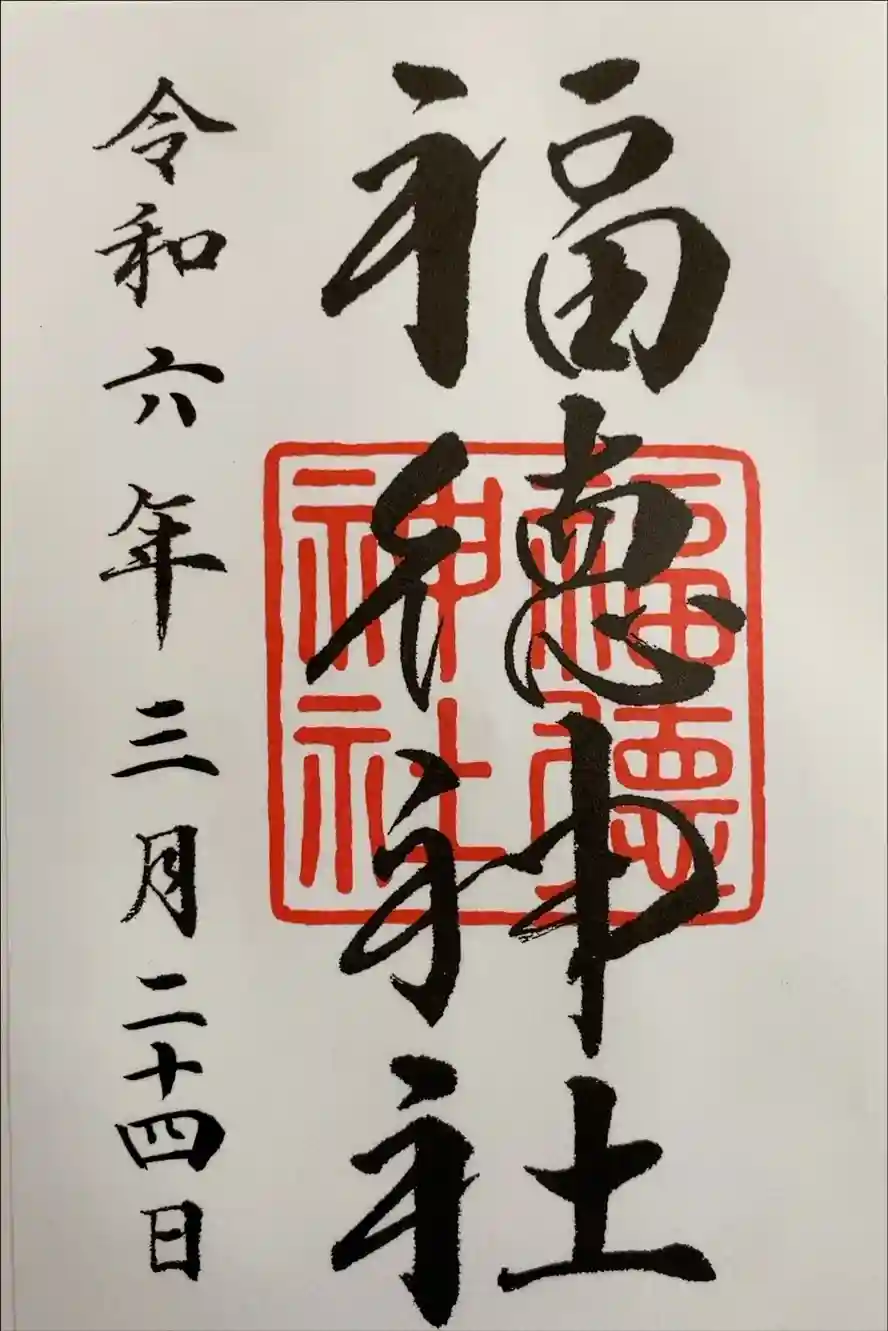 福徳神社
令和六年三月二十四日
福徳
神社